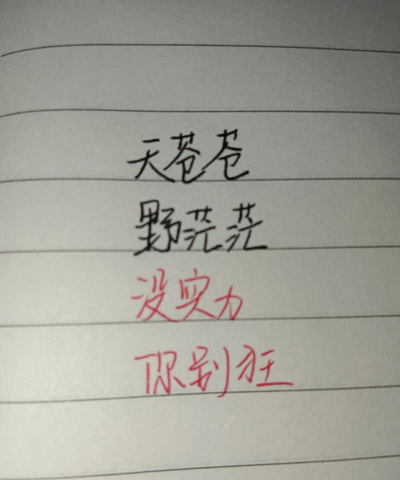 天苍苍
野茫茫
没实力
你别狂